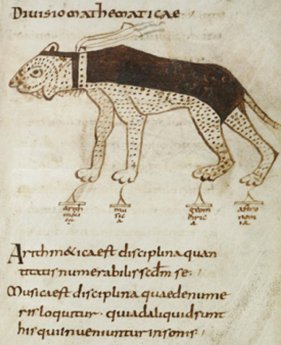 Divisio mathematicae
mu
sic
a
astro
Arithm&ica est disciplina quan
titatis numerabilis secdm se.
Musica est disciplina quae de nume
ris loquitur. qui ad aliquid sunt
his qui inveniuntur in sonis.